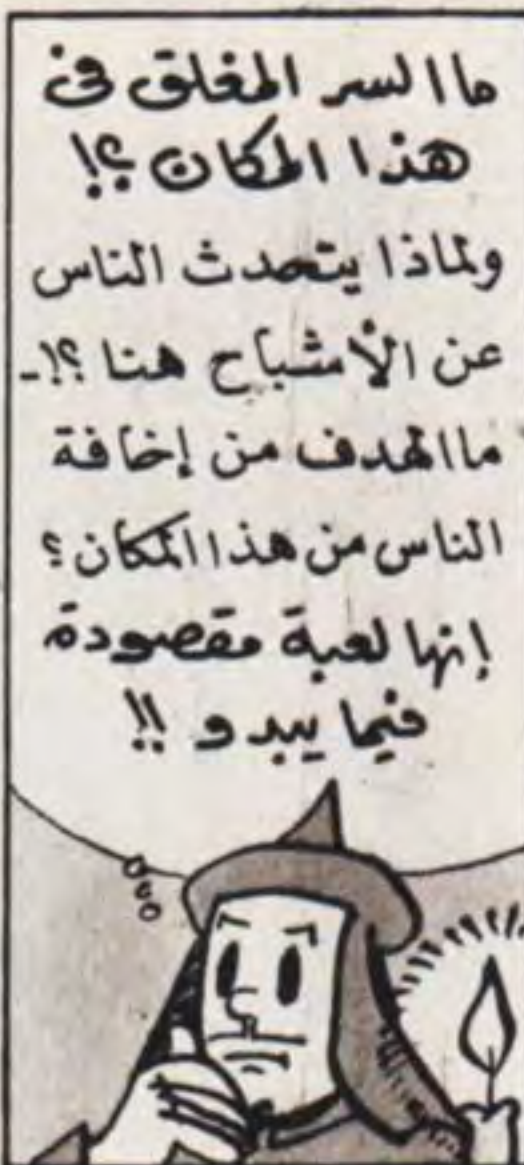 ما السر المغلق فى
هذا المكان ؟!
ولماذا يتحدث الناس
عن الأشباح هنا ؟!-
ما الهدف من إخافة
الناس من هذا المكان ؟
إنها لعبة مقصودة
فيما يبدو !!